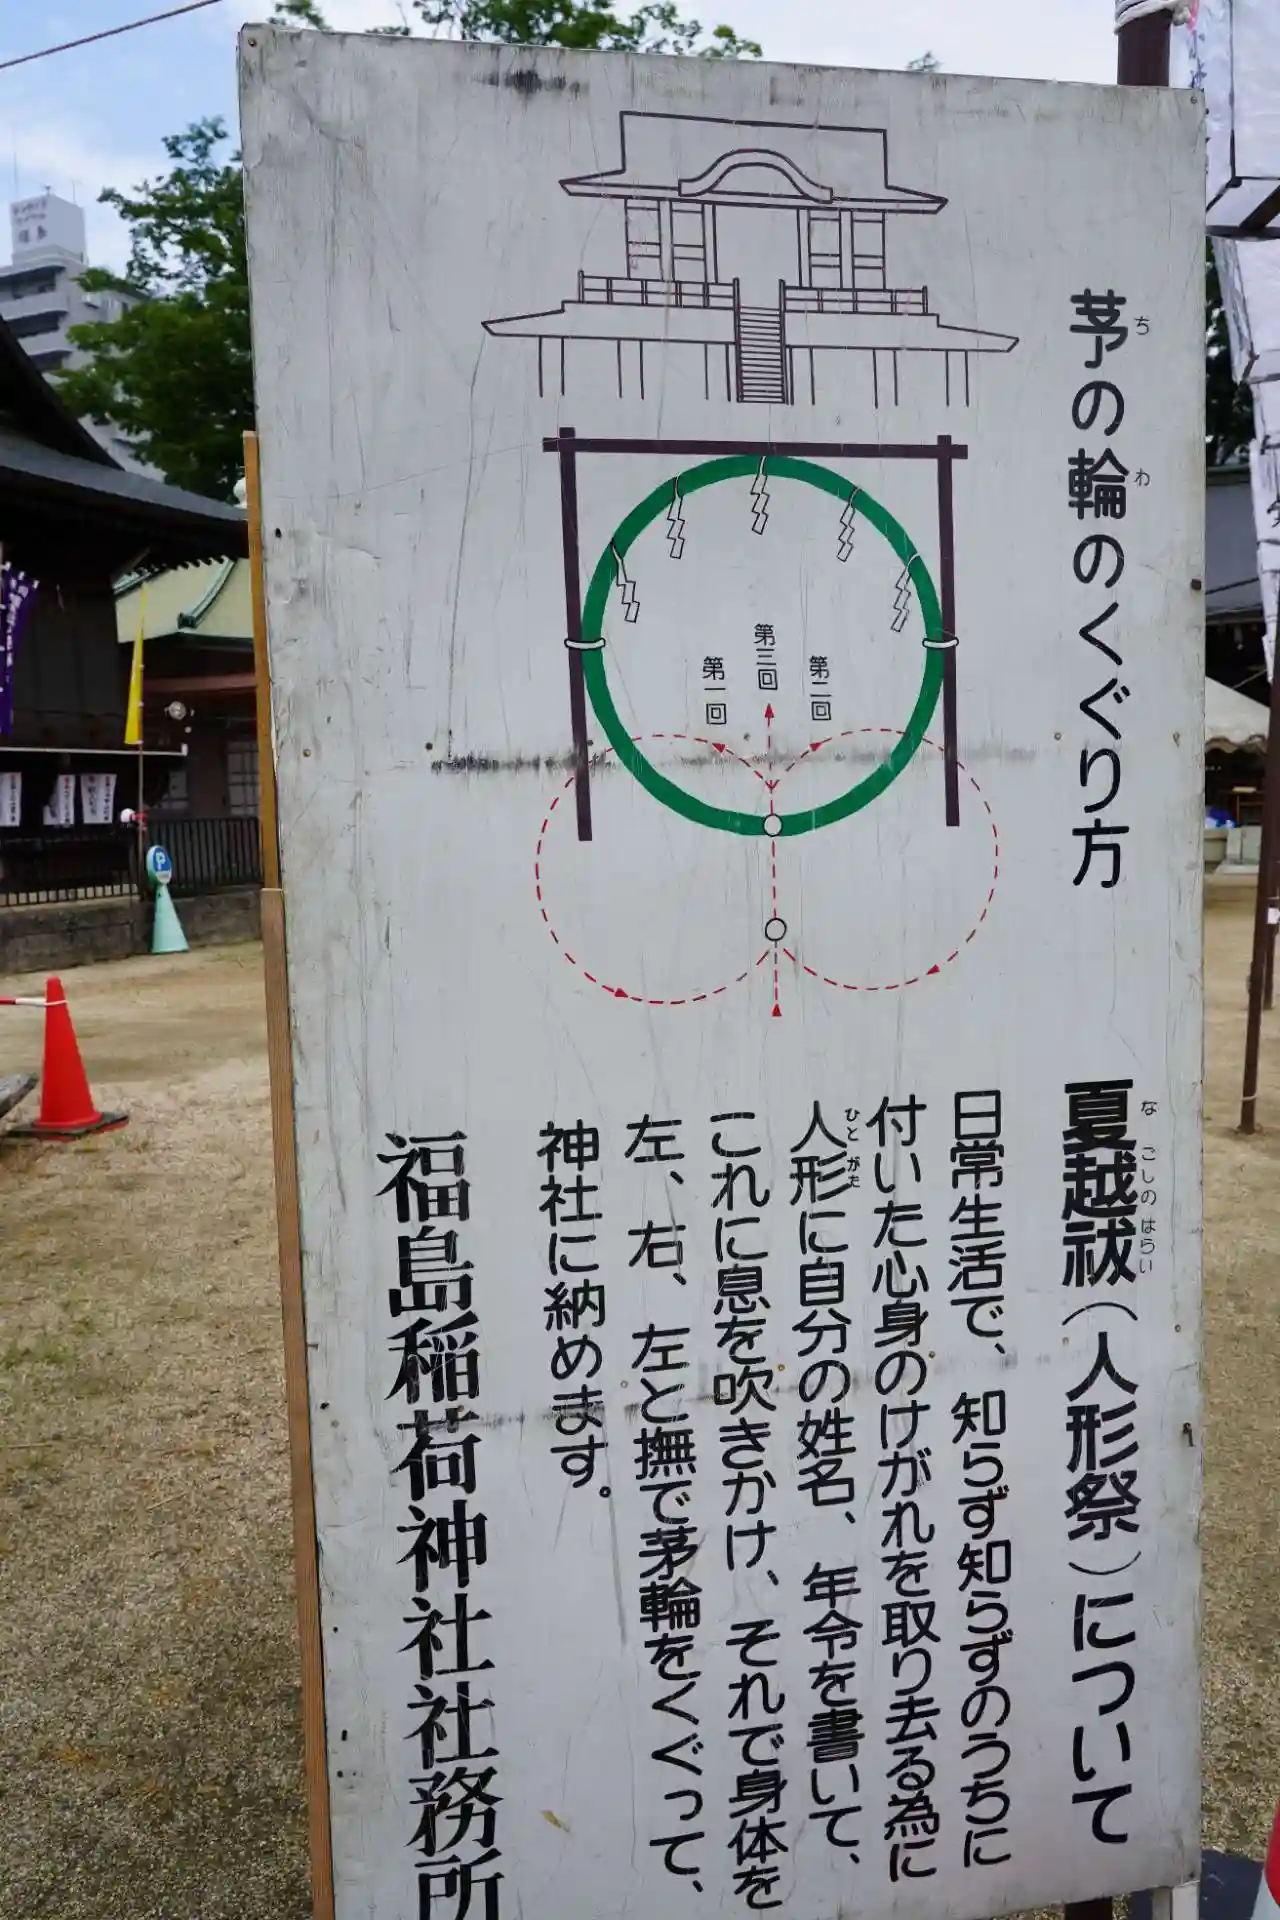 茅の輪のくぐり方
ち
わ
第一回
第三回
第二回
夏越祓（人形祭）について
なごしの はらい
日常生活で、知らず知らずのうちに
付いた心身のけがれを取り去る為に
人形に自分の姓名、年令を書いて、
ひとがた
これに息を吹きかけ、それで身体を
左、右、左と撫で茅輪をくぐって、
神社に納めます。
福島稲荷神社社務所
P